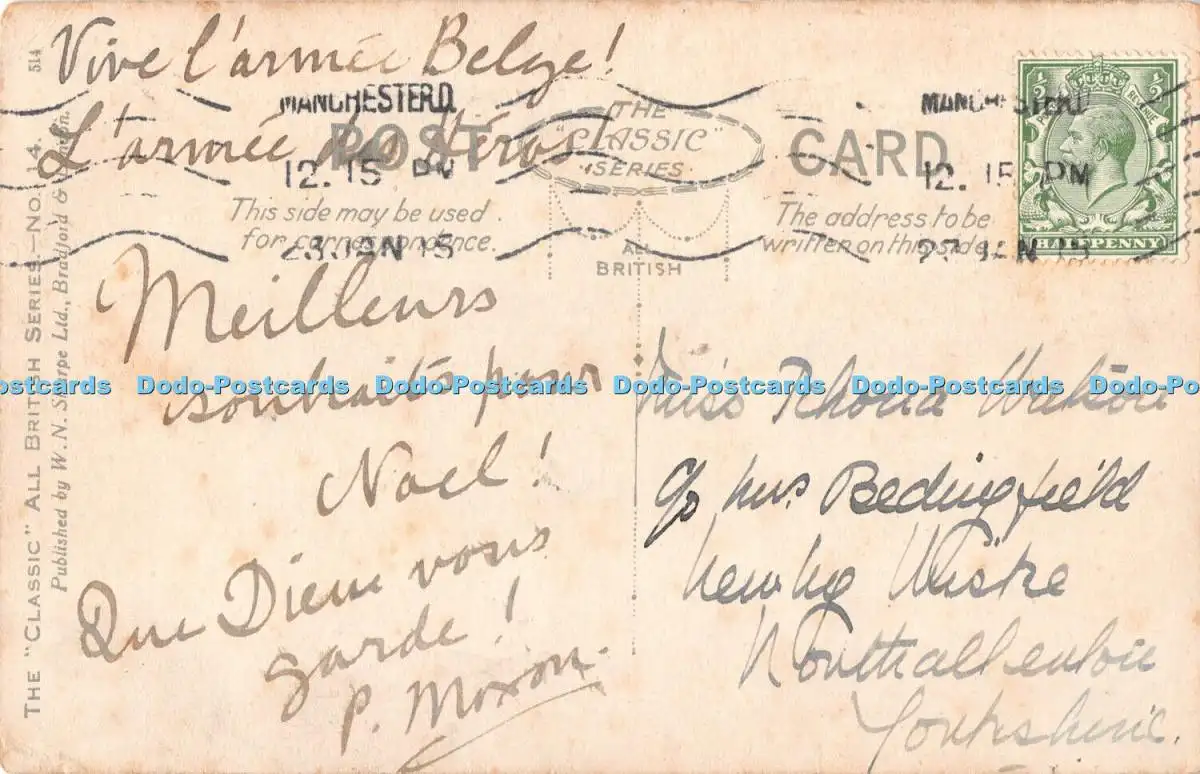 Vive l'armée Belge!
L'armée des Héros
514
THE "CLASSIC" ALL BRITISH SERIES.—No. 14.
Published by W. N. Sharpe Ltd., Bradford & London.
POST CARD
THE
"CLASSIC"
SERIES
ALL
BRITISH
This side may be used
for correspondence.
The address to be
written on this side.
MANCHESTER.O.
12. 15 PM
23 JAN 15
MANCHESTER.O.
12. 15 PM
23 JAN 15
HALFPENNY
Meilleurs
souhaits pour
Noel!
Que Dieu vous
garde!
P. Moxon.
Miss Rhoda
c/o Mrs. Bedingfield
Newby Wiske
Northallerton
Yorkshire.
Dodo-Postcards Dodo-Postcards Dodo-Postcards Dodo-Postcards